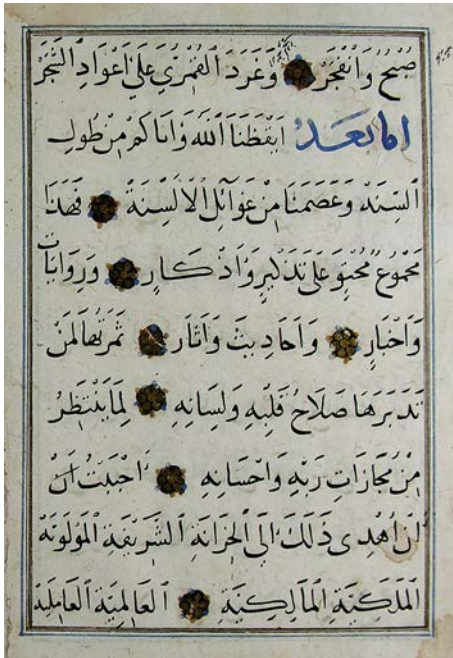 صُبْحٌ وَانْفَجَرَ وَغَرَّدَ القُمْرِيُّ عَلَى أَعْوَادِ الشَّجَرِ
امّا بَعَدُ اَيْقَظَنَا اَللَّهُ وَاِيَّاكُمْ مِنْ طُولِ
السِّنَةِ وَعَصَمَنَا مِنْ غَوَائِلِ الْاَلْسِنَةِ فَهَذَا
مَجْمُوعٌ مُحْتَوٍ عَلَى تَذْكِيرٍ وَاَذْكَارٍ وَرِوَايَاتٍ
وَاَخْبَارٍ وَاَحَادِيثَ وَآثَارٍ ثَمَرَتُهَا لِمَنْ
تَدَبَّرَهَا صَلَاحُ قَلْبِهِ وَلِسَانِهِ لِمَا يَنْتَظِرُ
مِنْ مُجَازَاتِ رَبِّهِ وَاِحْسَانِهِ اَحْبَبْتُ اَنْ
اَنْ اُهْدِىَ ذَلِكَ اِلَى الْخِزَانَةِ الشَّرِيفَةِ الْمَوْلَوِيَّةِ
الْمَلَكِيَّةِ الْمَالِكِيَّةِ الْعَالِمِيَّةِ الْعَامِلِيَّةِ